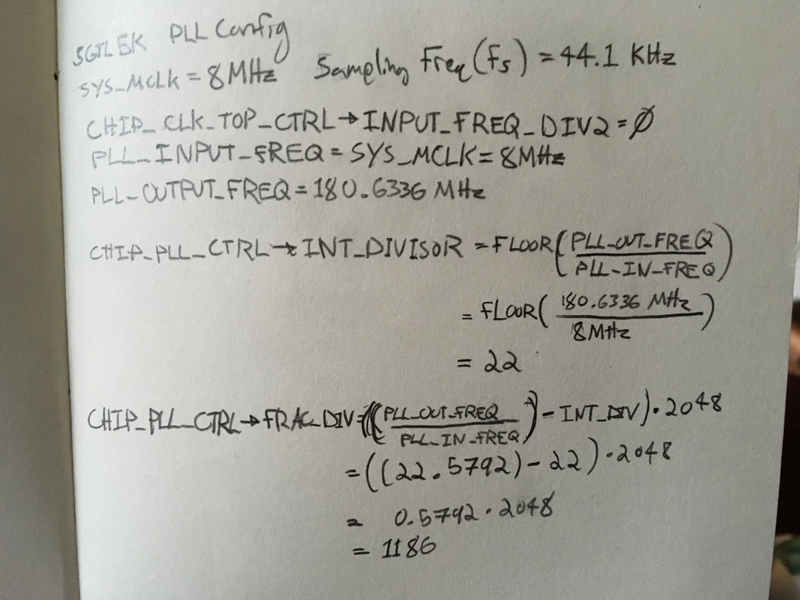 SGTL5K PLL Config
SYS_MCLK = 8MHz Sampling Freq(fs) = 44.1 KHz
CHIP_CLK_TOP_CTRL→INPUT_FREQ_DIV2=∅
PLL_INPUT_FREQ=SYS_MCLK=8MHz
PLL_OUTPUT_FREQ=180.6336 MHz
CHIP_PLL_CTRL→INT_DIVISOR = FLOOR(PLL_OUT_FREQ/PLL_IN_FREQ)
= FLOOR(180.6336 MHz/8MHz)
= 22
CHIP_PLL_CTRL→FRAC_DIV=((PLL_OUT_FREQ/PLL_IN_FREQ)-INT_DIV)·2048
=((22.5792)-22)·2048
= 0.5792·2048
= 1186